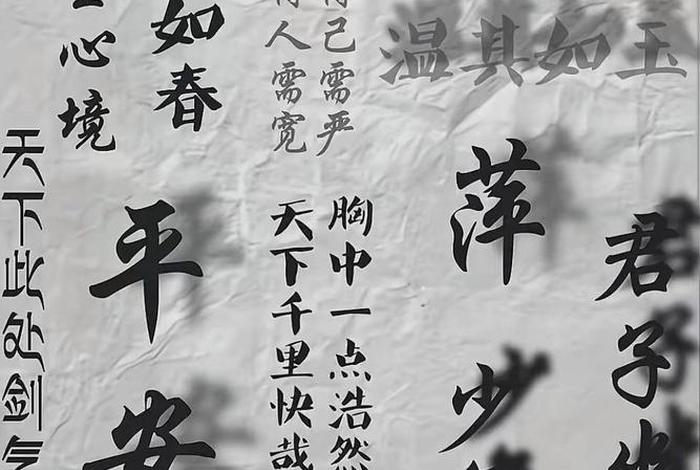 温其如玉
君子
萍少
己需严
人需宽
胸中一点浩然
天下千里快哉
如春
平安
心境
天下此处剑气